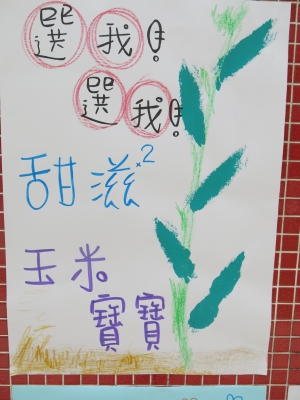 選我!
選我!
甜滋×2
玉米
寶寶